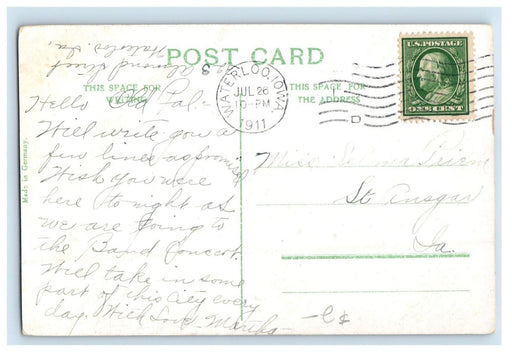 POST CARD
THIS SPACE FOR WRITING
THIS SPACE FOR THE ADDRESS
Made in Germany
U.S. POSTAGE
ONE CENT
WATERLOO, IOWA
JUL 26
10-PM
1911
D
street
Waterloo. Ia,
Hello Old Pal:-
Will write you a
few lines as promised
Wish you were
here to night as
we are going to
the Band Concert.
Will take in some
part of this City every
day. With Love - Martha -
Miss
St Ansgar
Ia.